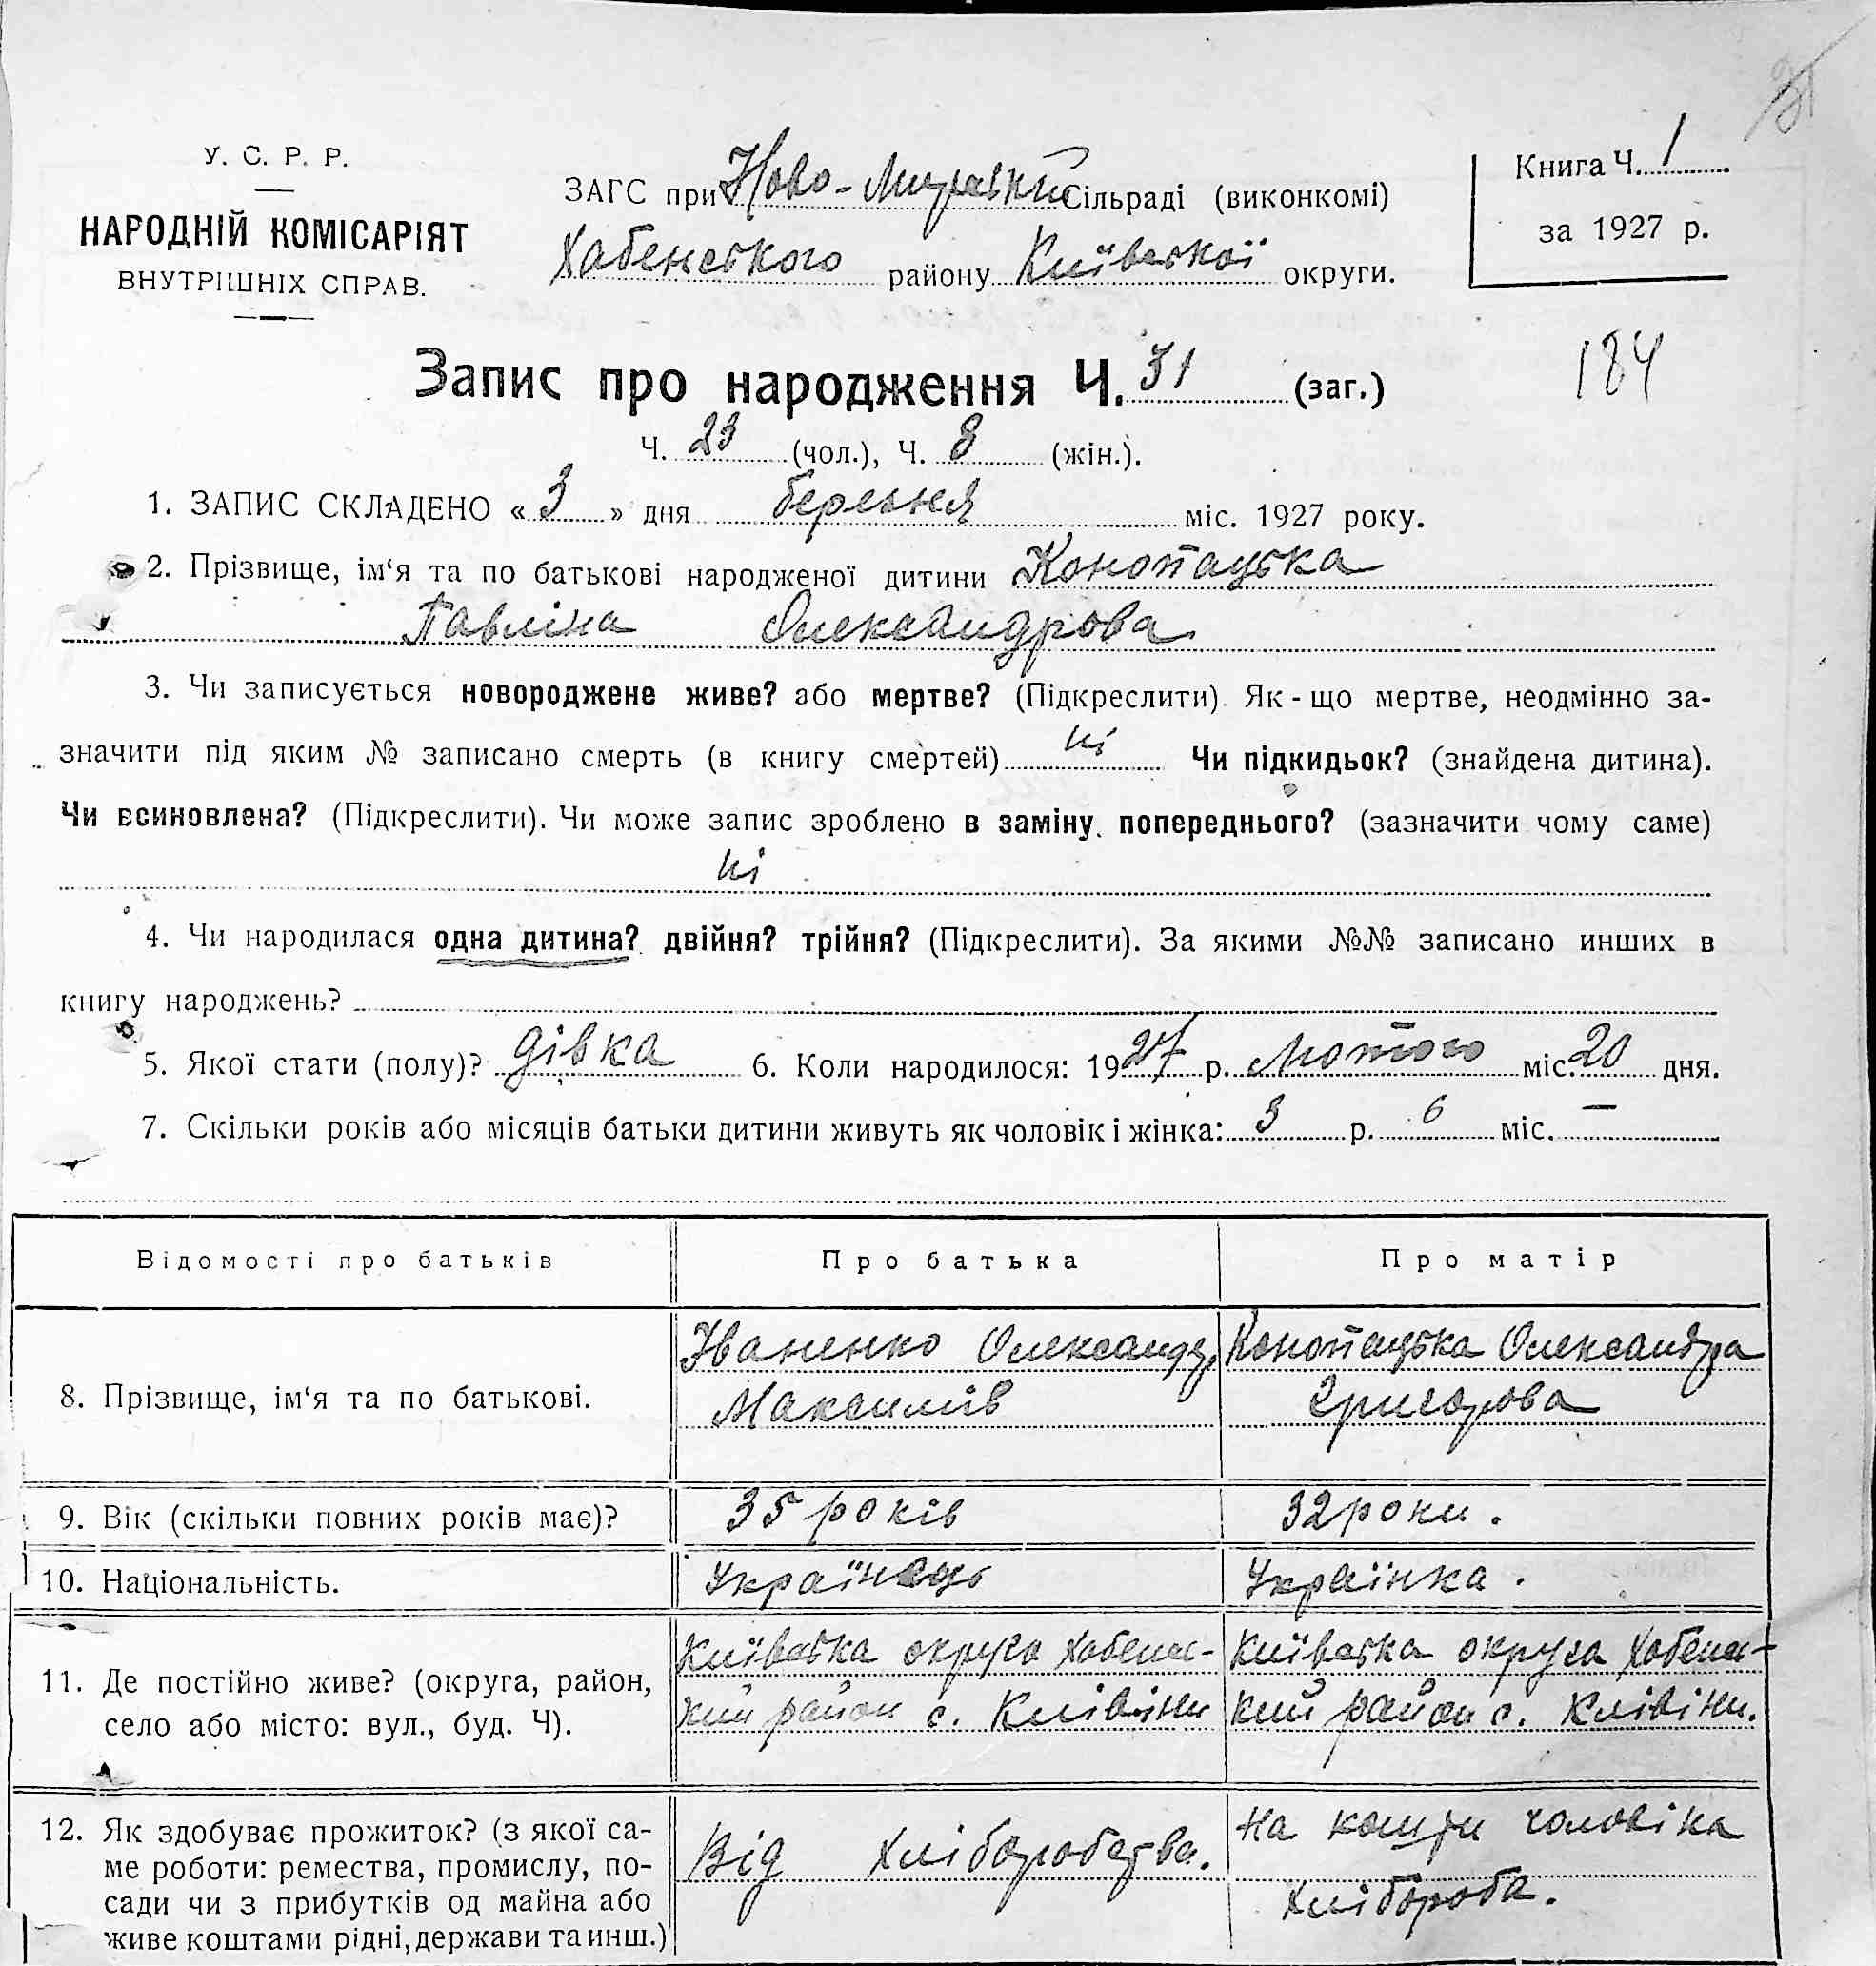 31
У. С. Р. Р.
НАРОДНІЙ КОМІСАРІЯТ
ВНУТРІШНІХ СПРАВ.
ЗАГС при Ново-Мирській Сільраді (виконкомі)
Хабенського району Київської округи.
Книга Ч. 1
за 1927 р.
184
Запис про народження Ч. 31 (заг.)
Ч. 23 (чол.), Ч. 8 (жін.).
1. ЗАПИС СКЛАДЕНО « 3 » дня березня міс. 1927 року.
2. Прізвище, ім‘я та по батькові народженої дитини Конопацька
Павліна Олександрова
3. Чи записується новороджене живе? або мертве? (Підкреслити). Як-що мертве, неодмінно за-
значити під яким № записано смерть (в книгу смертей) ні Чи підкидьок? (знайдена дитина).
Чи всиновлена? (Підкреслити). Чи може запис зроблено в заміну попереднього? (зазначити чому саме)
ні
4. Чи народилася одна дитина? двійня? трійня? (Підкреслити). За якими №№ записано инших в
книгу народжень?
5. Якої стати (полу)? дівка 6. Коли народилося: 1927 р. Лютого міс. 20 дня.
7. Скільки років або місяців батьки дитини живуть як чоловік і жінка: 3 р. 6 міс. —
Відомості про батьків Про батька Про матір
8. Прізвище, ім‘я та по батькові.
Іваненко Олександр
Максимів
Конопацька Олександра
Григорова
9. Вік (скільки повних років має)? 35 років 32 роки.
10. Національність. Українець Українка.
11. Де постійно живе? (округа, район,
село або місто: вул., буд. Ч).
Київська округа Хабенс-
кий район с. Клівіни
Київська округа Хабенс-
кий район с. Клівіни.
12. Як здобуває прожиток? (з якої са-
ме роботи: ремества, промислу, по-
сади чи з прибутків од майна або
живе коштами рідні, держави та инш.)
Від хліборобства.
На кошти чоловіка
хлібороба.